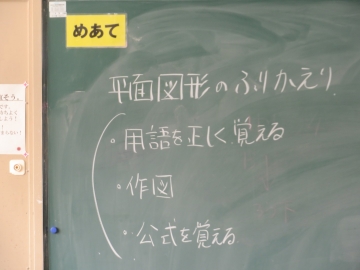 めあて
平面図形のふりかえり
・用語を正しく覚える
・作図
・公式を覚える